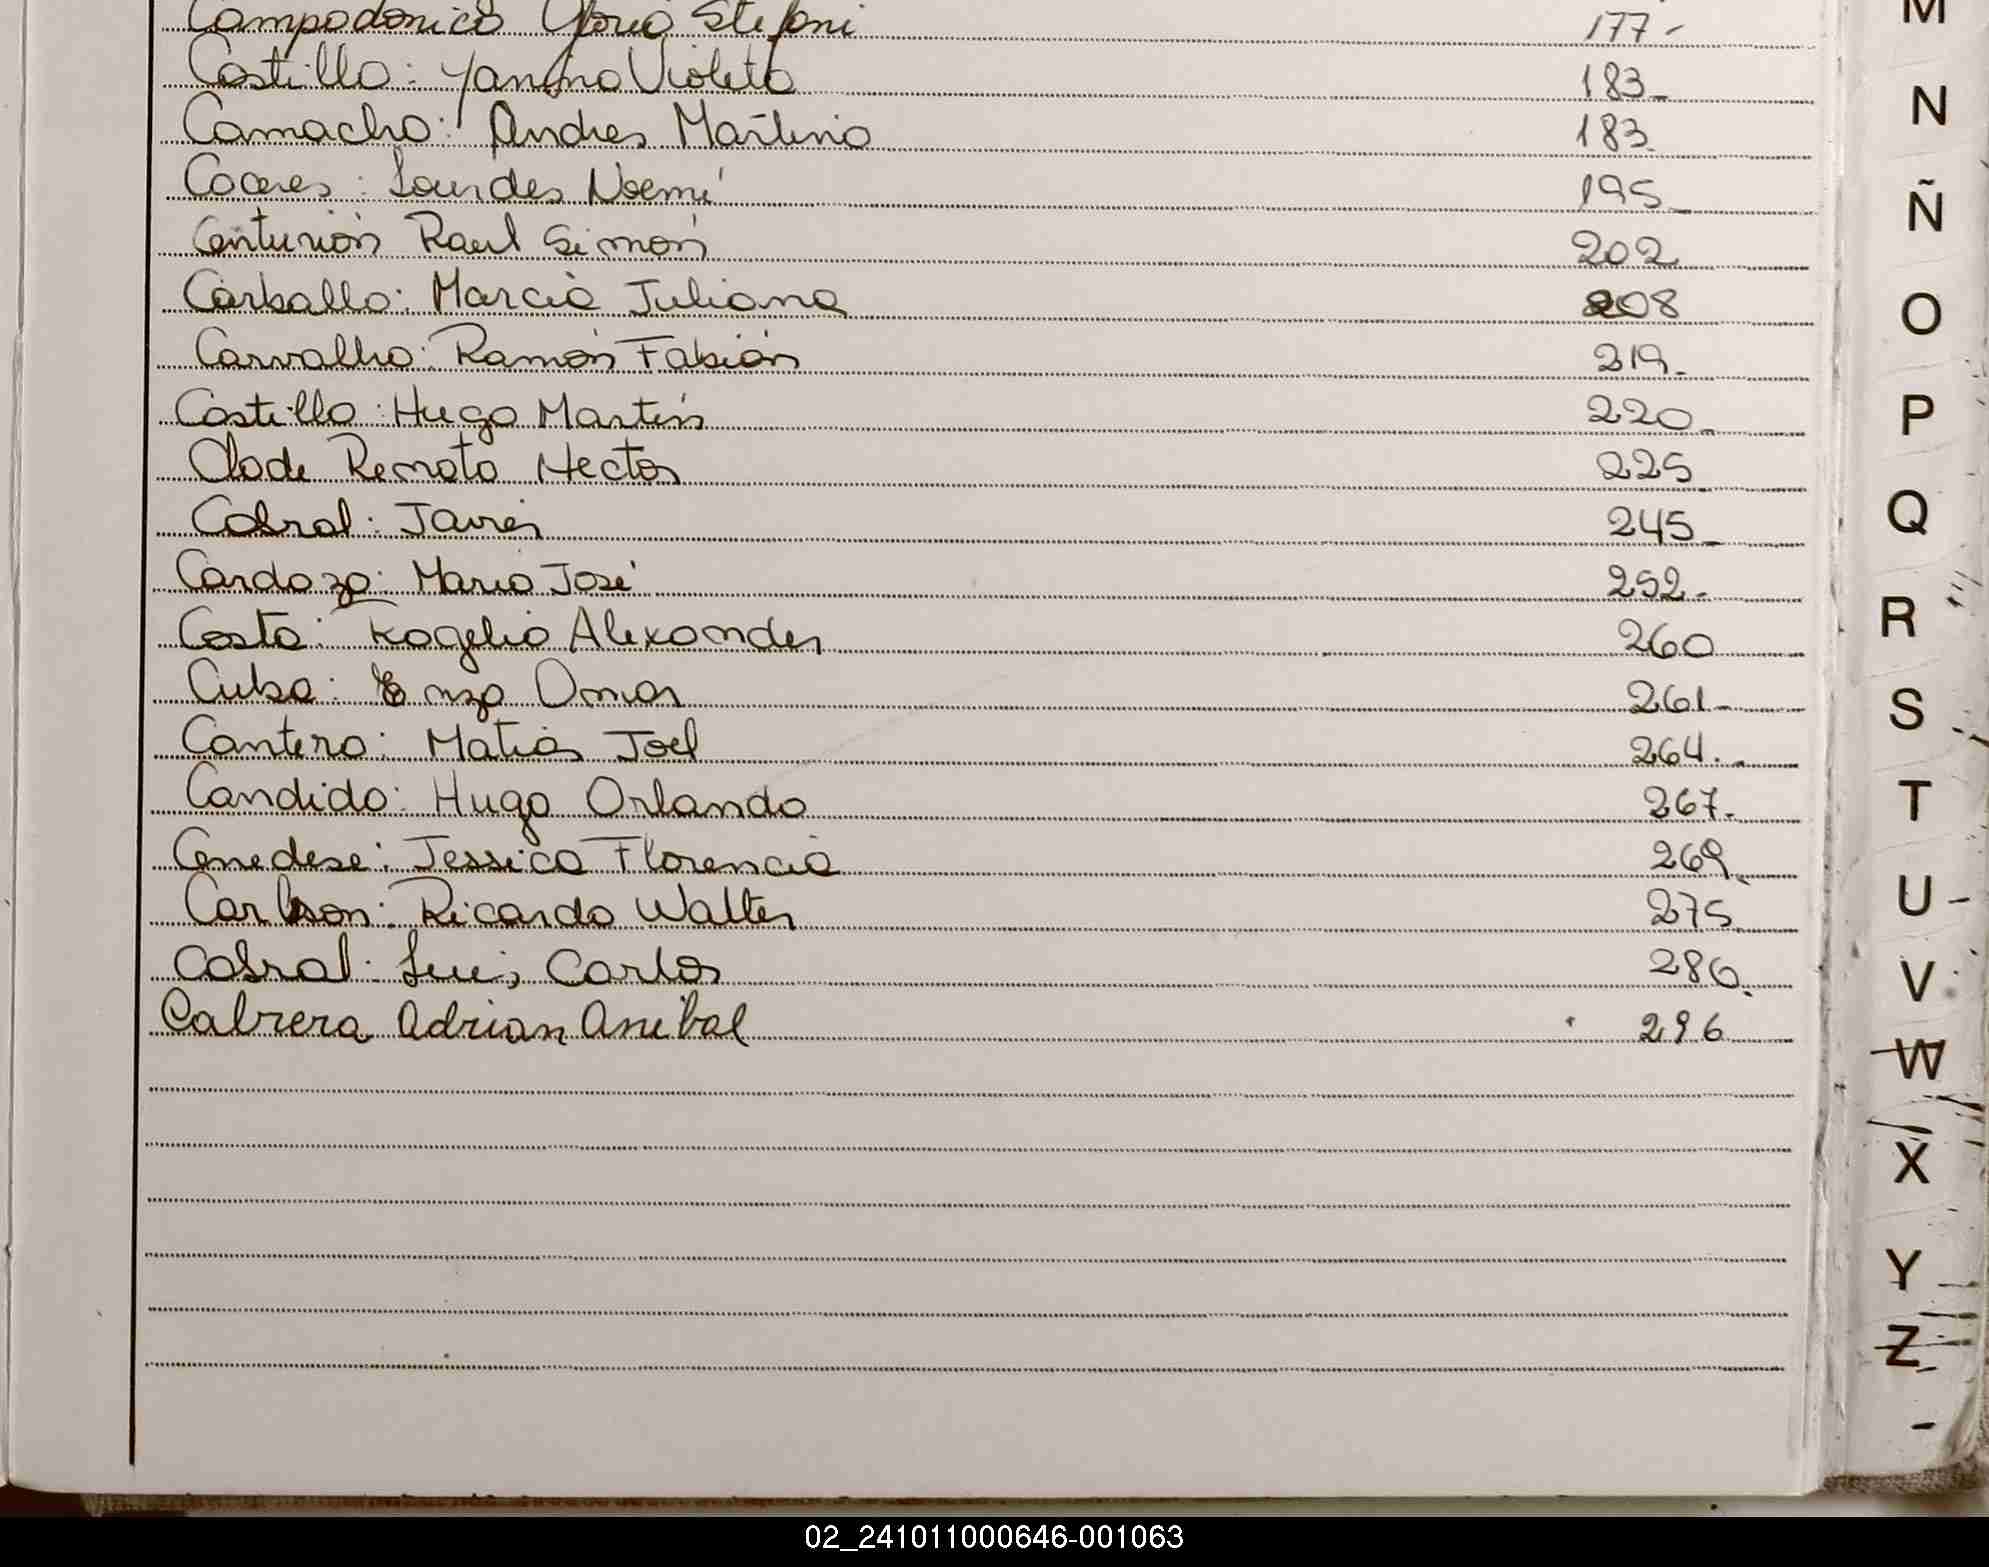 Campodonico Gloria Stefani 177-
Castillo: Yanina Violeta 183-
Camacho: Andres Martino 183.
Caceres: Lourdes Noemí 195-
Centurión Raul Simón 202
Carballo: Marcia Juliana 208
Carvalho: Ramón Fabián 219-
Castillo: Hugo Martín 220-
Clode Renato Hector 225
Cabral: Javier 245-
Cardozo: Mario José 252-
Costa: Rogelio Alexander 260
Cuba: Enzo Omar 261-
Cantero: Matias Joel 264.-
Candido: Hugo Orlando 267.-
Cenedese: Jessica Florencia 269-
Carlson: Ricardo Walter 275
Cabral: Luis Carlos 286.
Cabrera Adrian Anibal 296
M
N
Ñ
O
P
Q
R
S
T
U
V
W
X
Y
Z
02_241011000646-001063